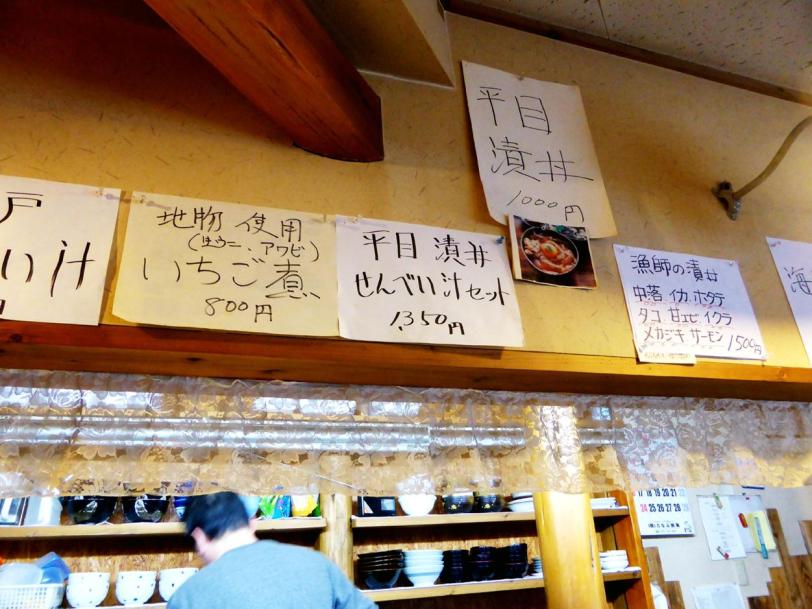 戸
い汁
円
地物 使用
(生ウニ、アワビ)
いちご煮
800円
平目 漬丼
せんべい汁セット
1,350円
平目
漬丼
1000円
漁師の漬丼
中落 イカ ホタテ
タコ 甘エビ イクラ
メカジキ サーモン 1500円
海
17 18 19 20 21 22
24 25 26 27 28 29